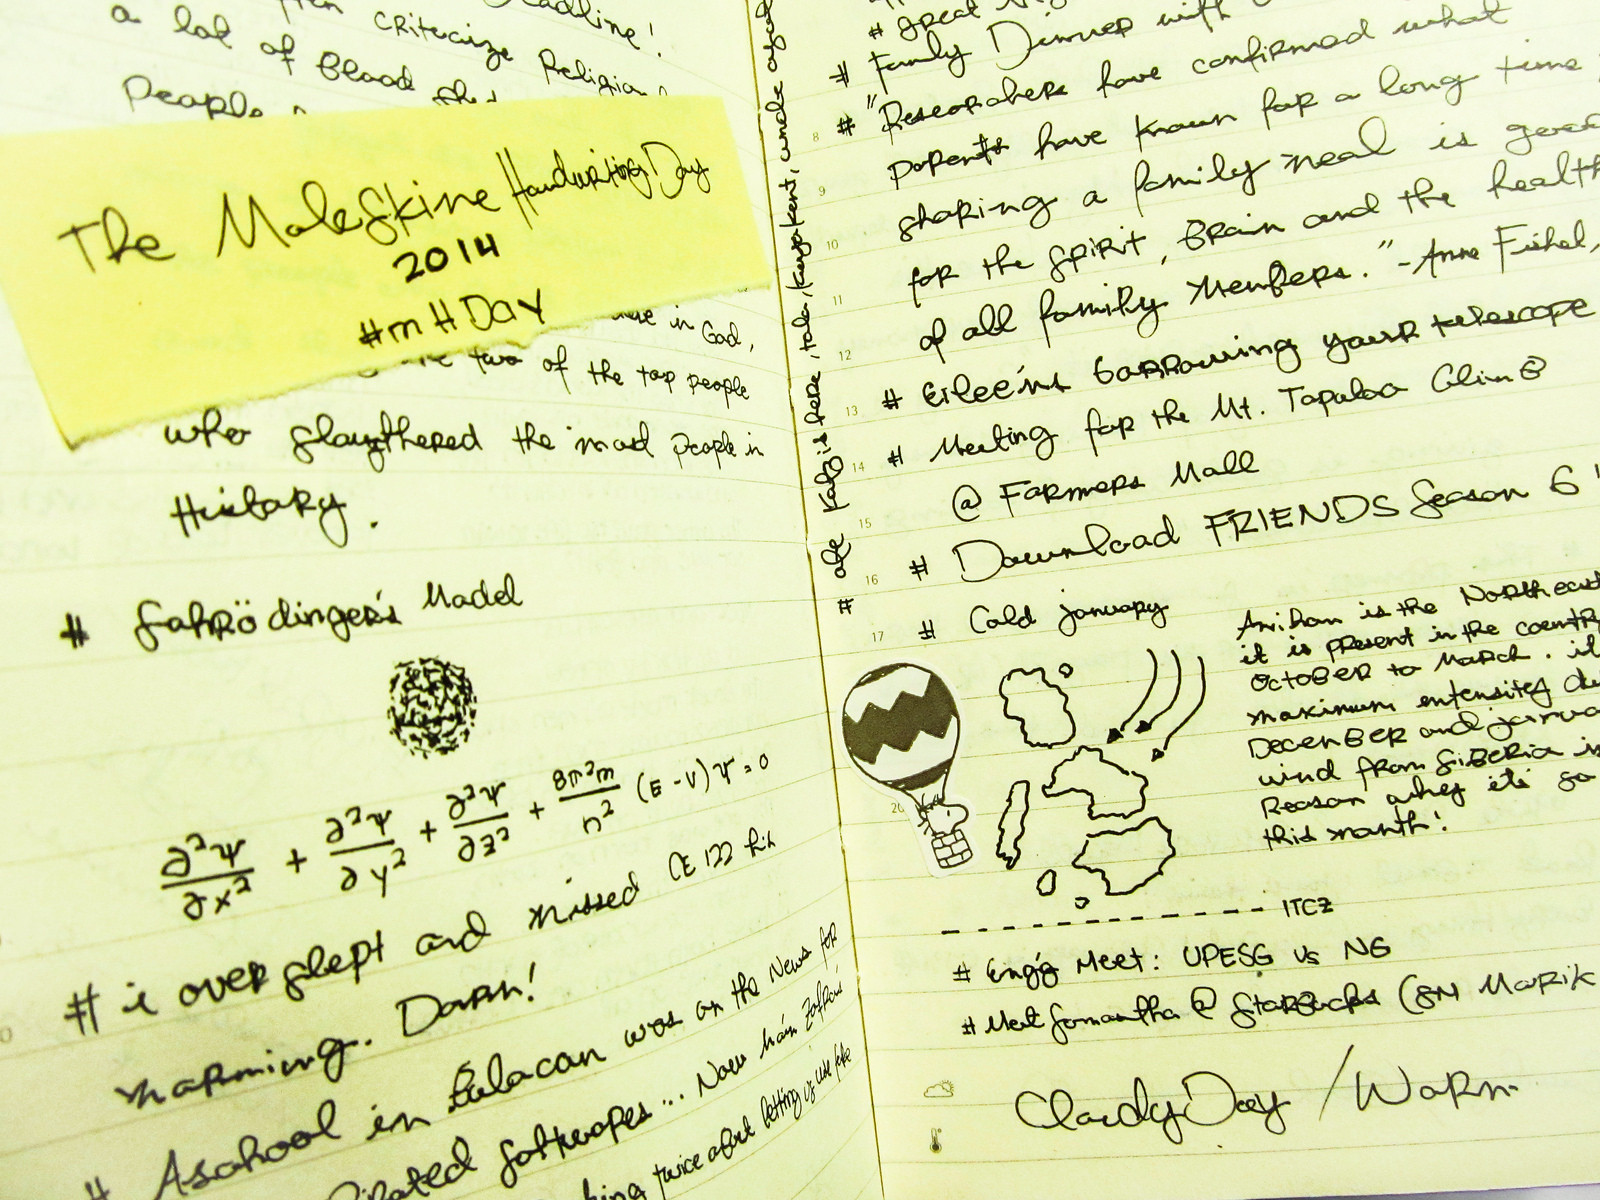 deadline!
criticize Religion
a lot of Blood shed
People
The Moleskine Handwriting Day
2014
#mHDay
in God,
are two of the top people
who slaughthered the most people in
History.
# Schrödinger's Model
∂²Ψ/∂x² + ∂²Ψ/∂y² + ∂²Ψ/∂z² + 8π²m/h² (E - V) Ψ = 0
# i overslept and missed CE 122 his
morning. Darn!
# A school in Bulacan was on the News for
softcopies... Now
twice about letting us use
# great
# Family Dinner with
# "Researchers have confirmed what
parents have known for a long time
sharing a family meal is good
for the spirit, Brain and the health
of all family members." - Anne Fishel,
# Eileen's borrowing your telescope
# Meeting for the Mt. Tapulao Climb
@ Farmers Mall
# Download FRIENDS Season 6
# Cold january
Amihan is the Northeast
it is present in the country
October to March. it
maximum intensity
December and january
wind from Siberia is
Reason why it's so
this month!
ITCZ
# Eng'g Meet: UPESG vs NG
# Meet Samantha @ Starbucks (SM Marik
Cloudy Day / Warm
8
9
10
11
12
13
14
15
16
17
20